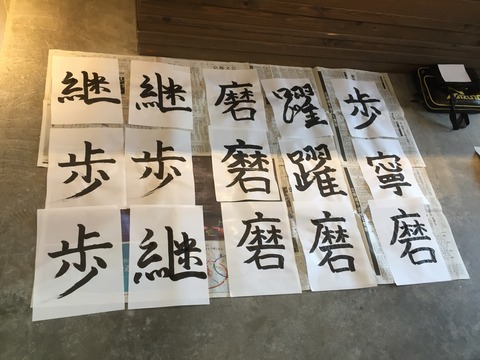 継 継 磨 躍 歩
歩 歩 磨 躍 寧
歩 継 磨 磨 磨